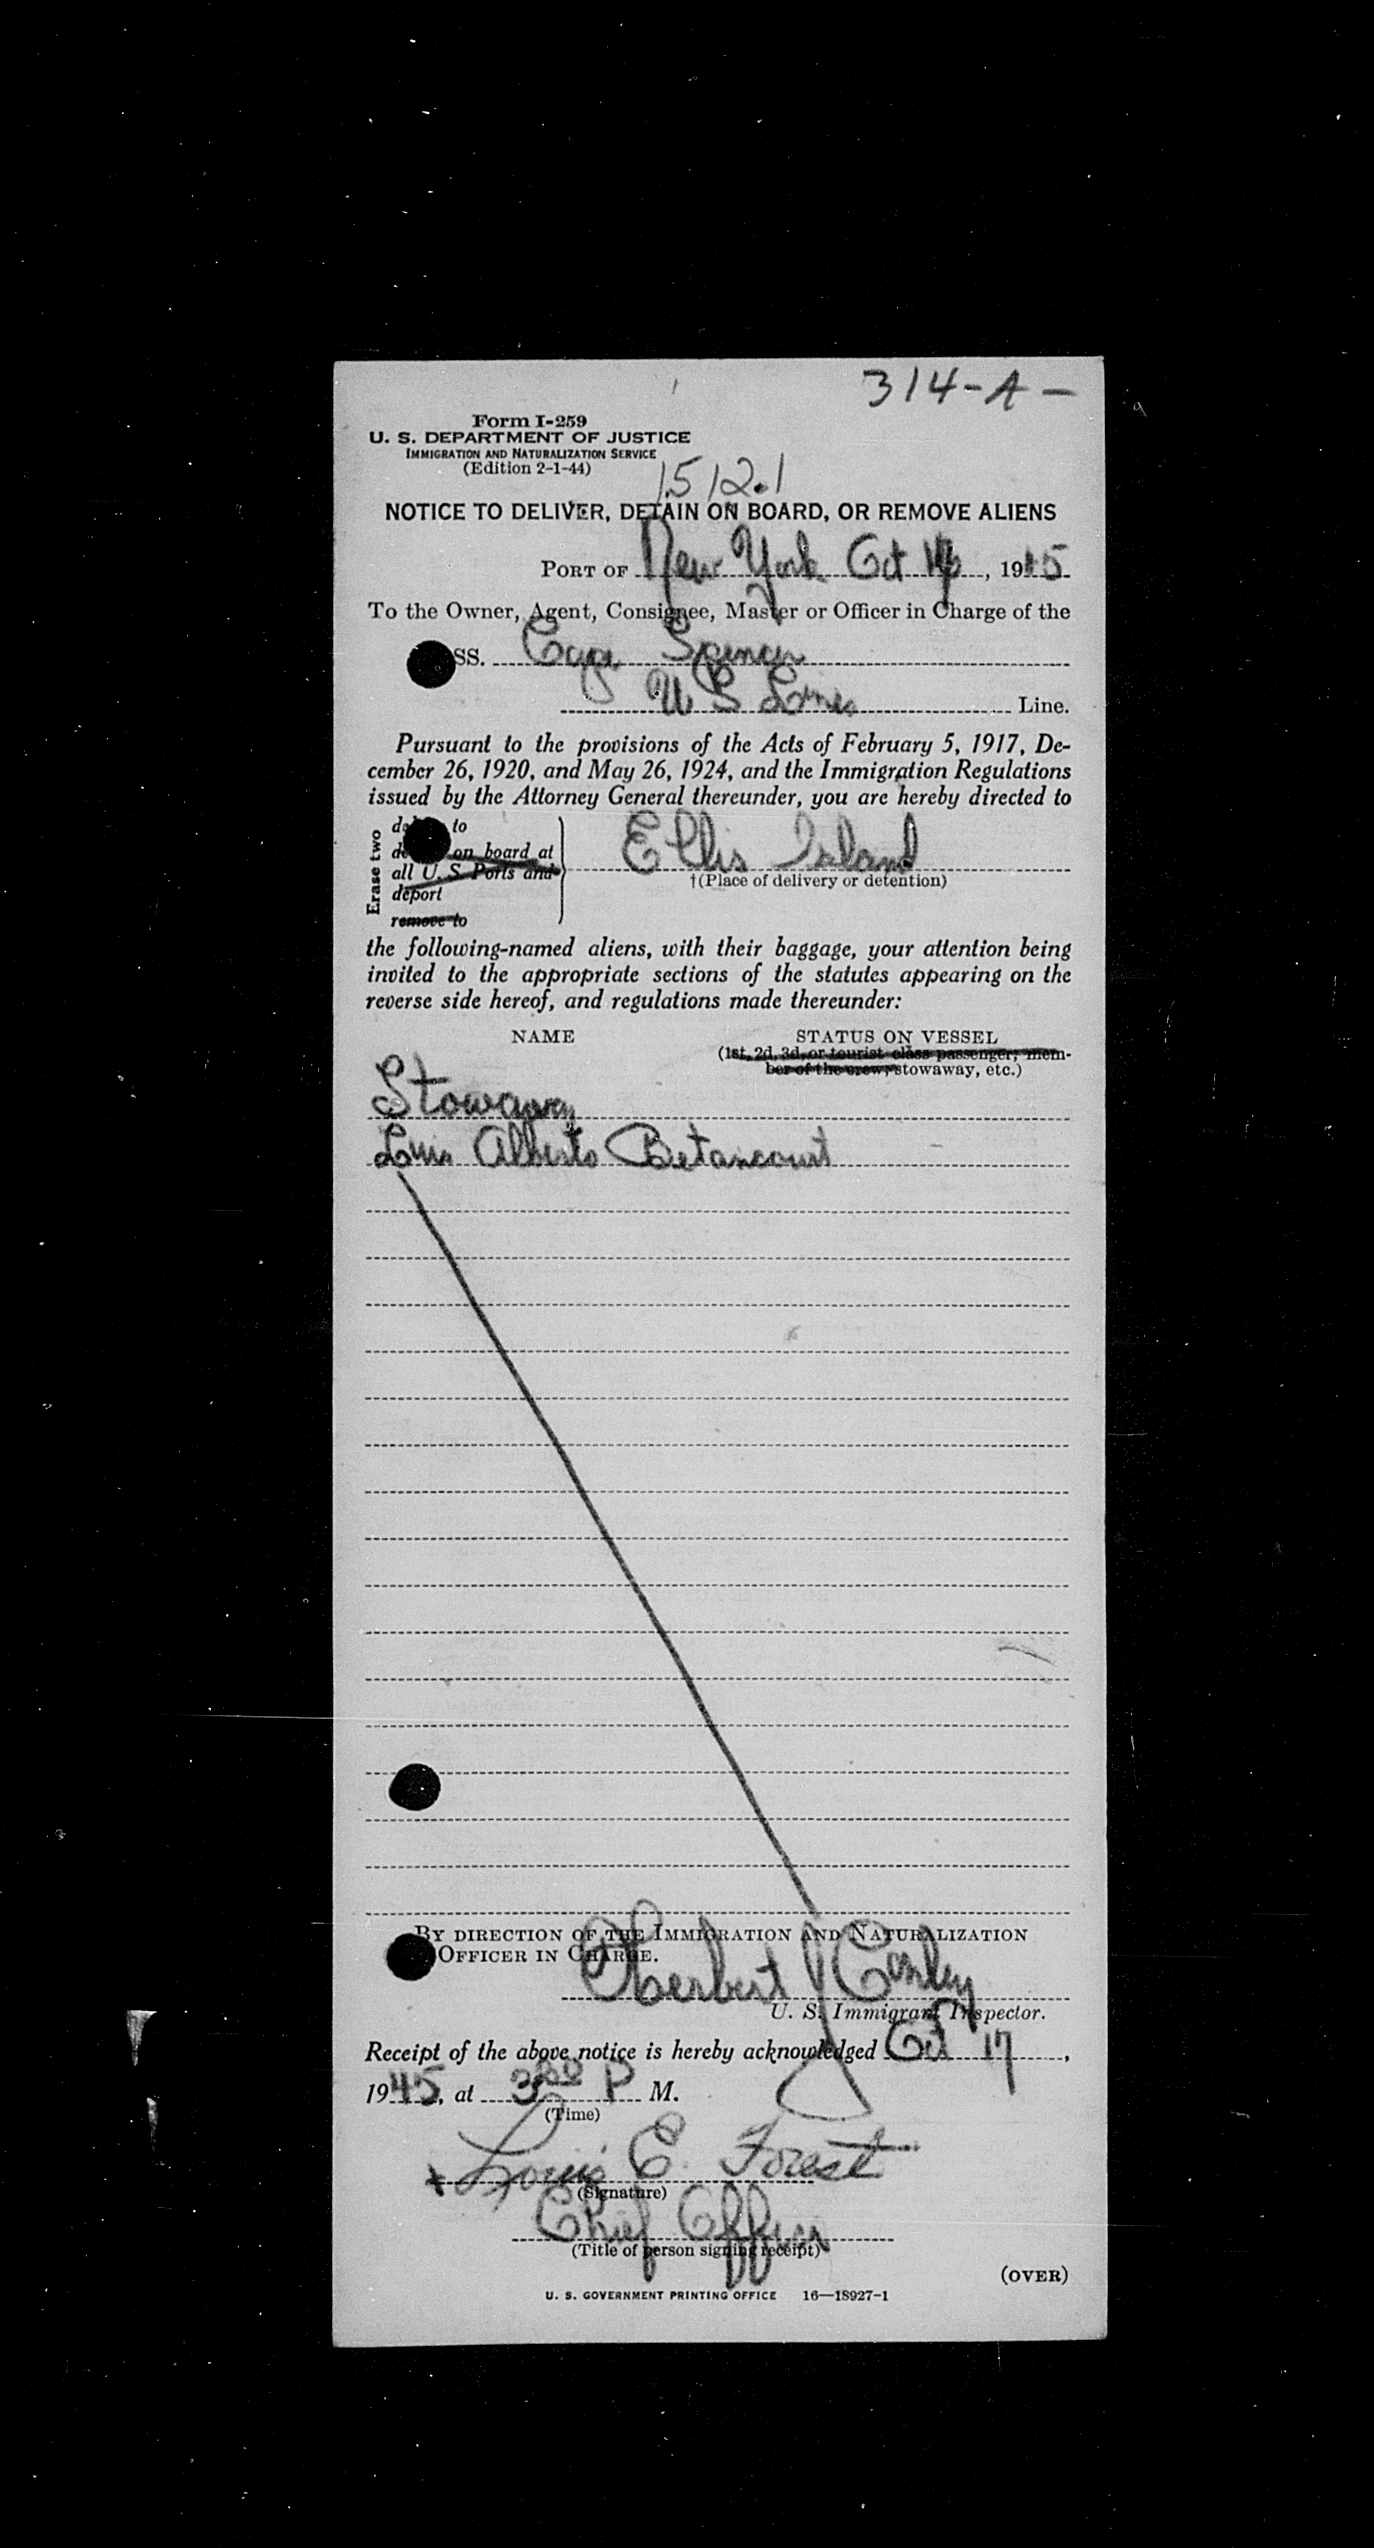 314-A-
Form I-259
U. S. DEPARTMENT OF JUSTICE
IMMIGRATION AND NATURALIZATION SERVICE
(Edition 2-1-44)
15121
NOTICE TO DELIVER, DETAIN ON BOARD, OR REMOVE ALIENS
PORT OF New York Oct 17, 1945
To the Owner, Agent, Consignee, Master or Officer in Charge of the
SS. Cape Spencer
U S Lines Line.
Pursuant to the provisions of the Acts of February 5, 1917, De-
cember 26, 1920, and May 26, 1924, and the Immigration Regulations
issued by the Attorney General thereunder, you are hereby directed to
Erase two
to
on board at
all U. S. Ports and
deport
remove to
Ellis Island
†(Place of delivery or detention)
the following-named aliens, with their baggage, your attention being
invited to the appropriate sections of the statutes appearing on the
reverse side hereof, and regulations made thereunder:
NAME STATUS ON VESSEL
(1st, 2d, 3d, or tourist class passenger, mem-
ber of the crew, stowaway, etc.)
Stowaway
Luis Alberto Betancourt
BY DIRECTION OF THE IMMIGRATION AND NATURALIZATION
OFFICER IN CHARGE.
Herbert J Conley
U. S. Immigrant Inspector.
Receipt of the above notice is hereby acknowledged Oct 17,
1945, at 3 P M.
(Time)
Louis E. Forest
(Signature)
Chief Officer
(Title of person signing receipt)
(OVER)
U. S. GOVERNMENT PRINTING OFFICE 16—18927-1